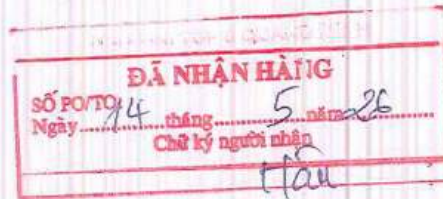 ĐÃ NHẬN HÀNG
SỐ PO/TO
Ngày 14 tháng 5 năm 26
Chữ ký người nhận
Hậu